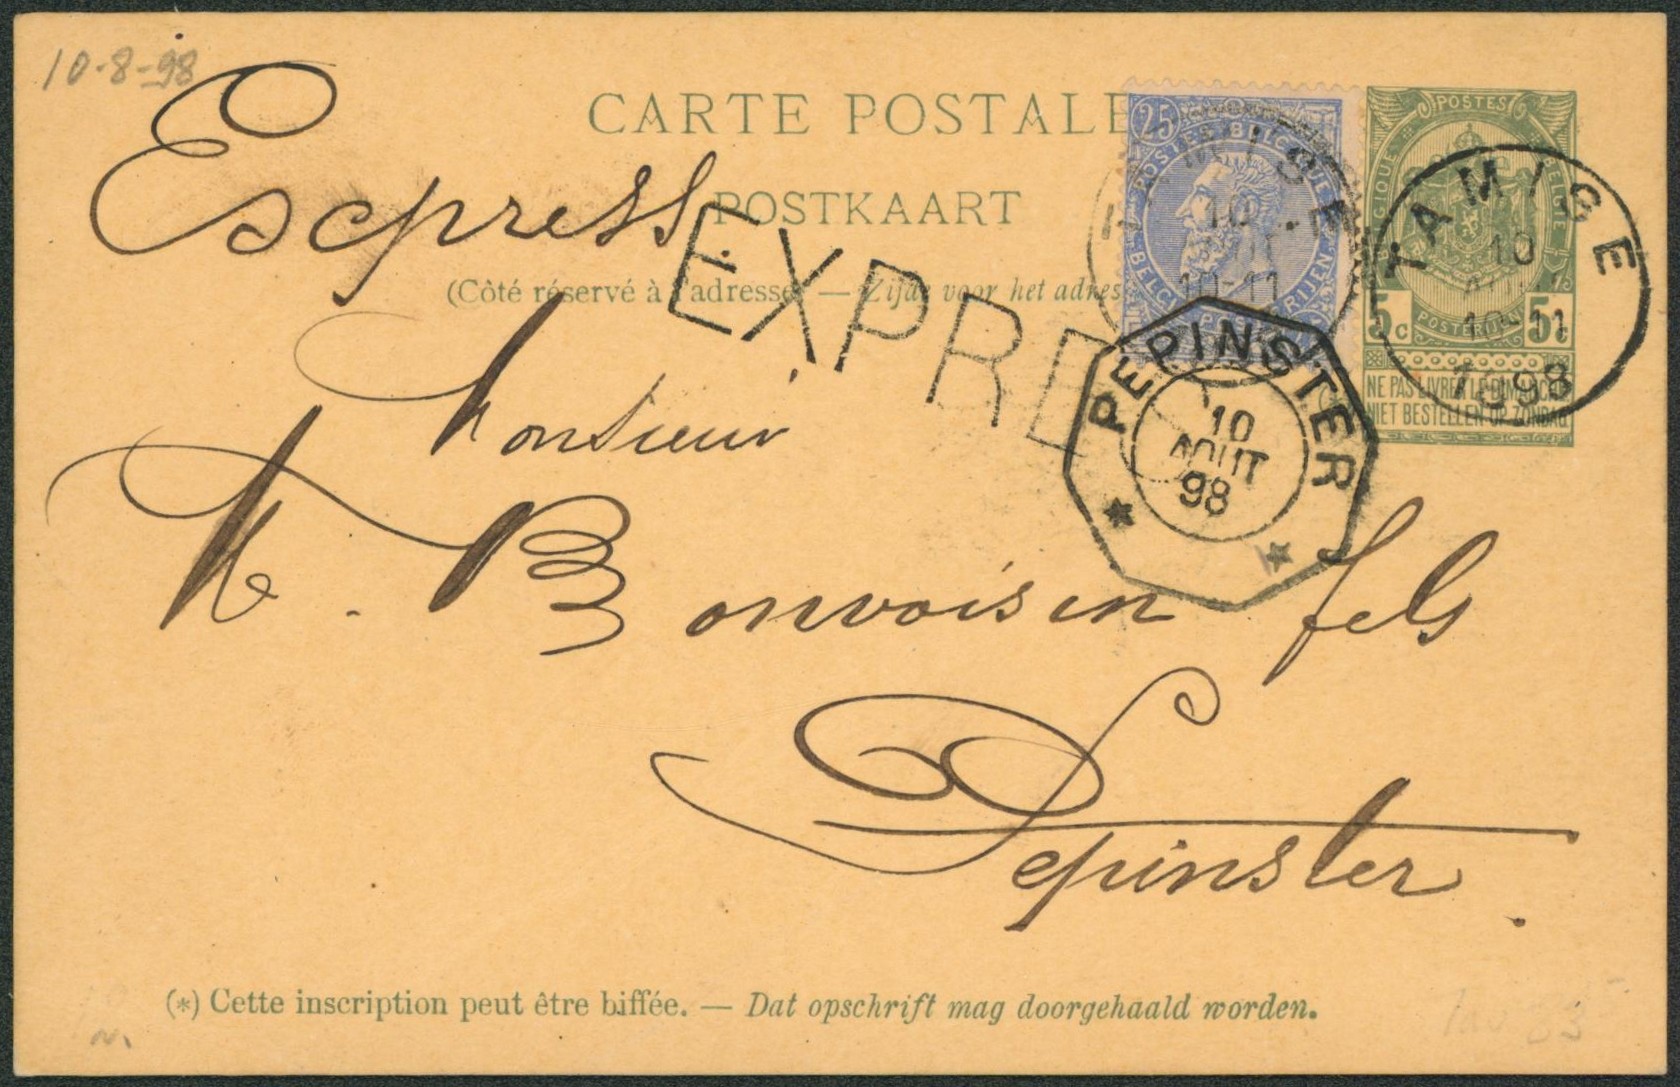 10-8-98
Express
CARTE POSTALE
POSTKAART
(Côté réservé à l'adresse) — Zijde voor het adres
EXPRE
25
POSTES BELGIQUE
BELGIE POSTERIJEN
TAMISE
10
10-11
POSTES
BELGIQUE BELGIE
5c 5c
POSTERIJEN
NE PAS LIVRER LE DIMANCHE
NIET BESTELLEN OP ZONDAG
TAMISE
10
AOUT
10-11
1898
PEPINSTER
10
AOUT
98
Monsieur
M. Bonvoisin fils
Pepinster
(*) Cette inscription peut être biffée. — Dat opschrift mag doorgehaald worden.